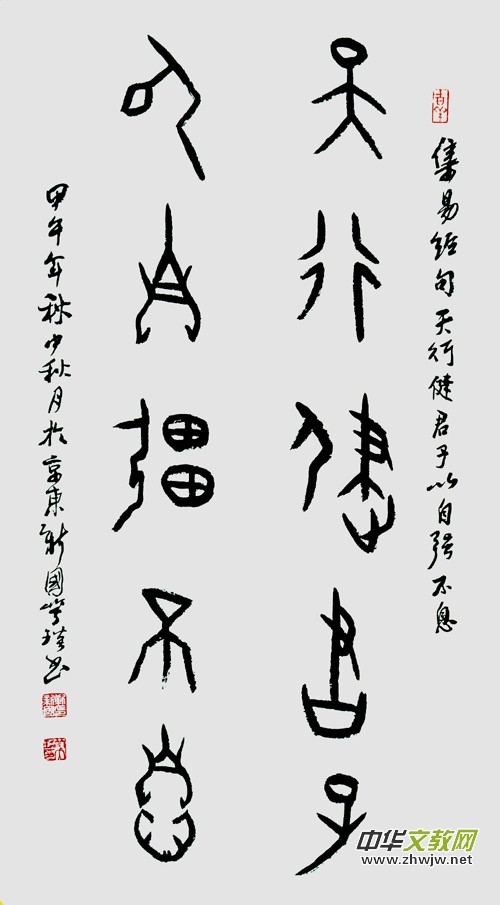 集易经句天行健君子以自强不息
天行健君子
以自彊不息
甲午年秋中秋月於京東新國
中华文教网
www.zhwjw.net